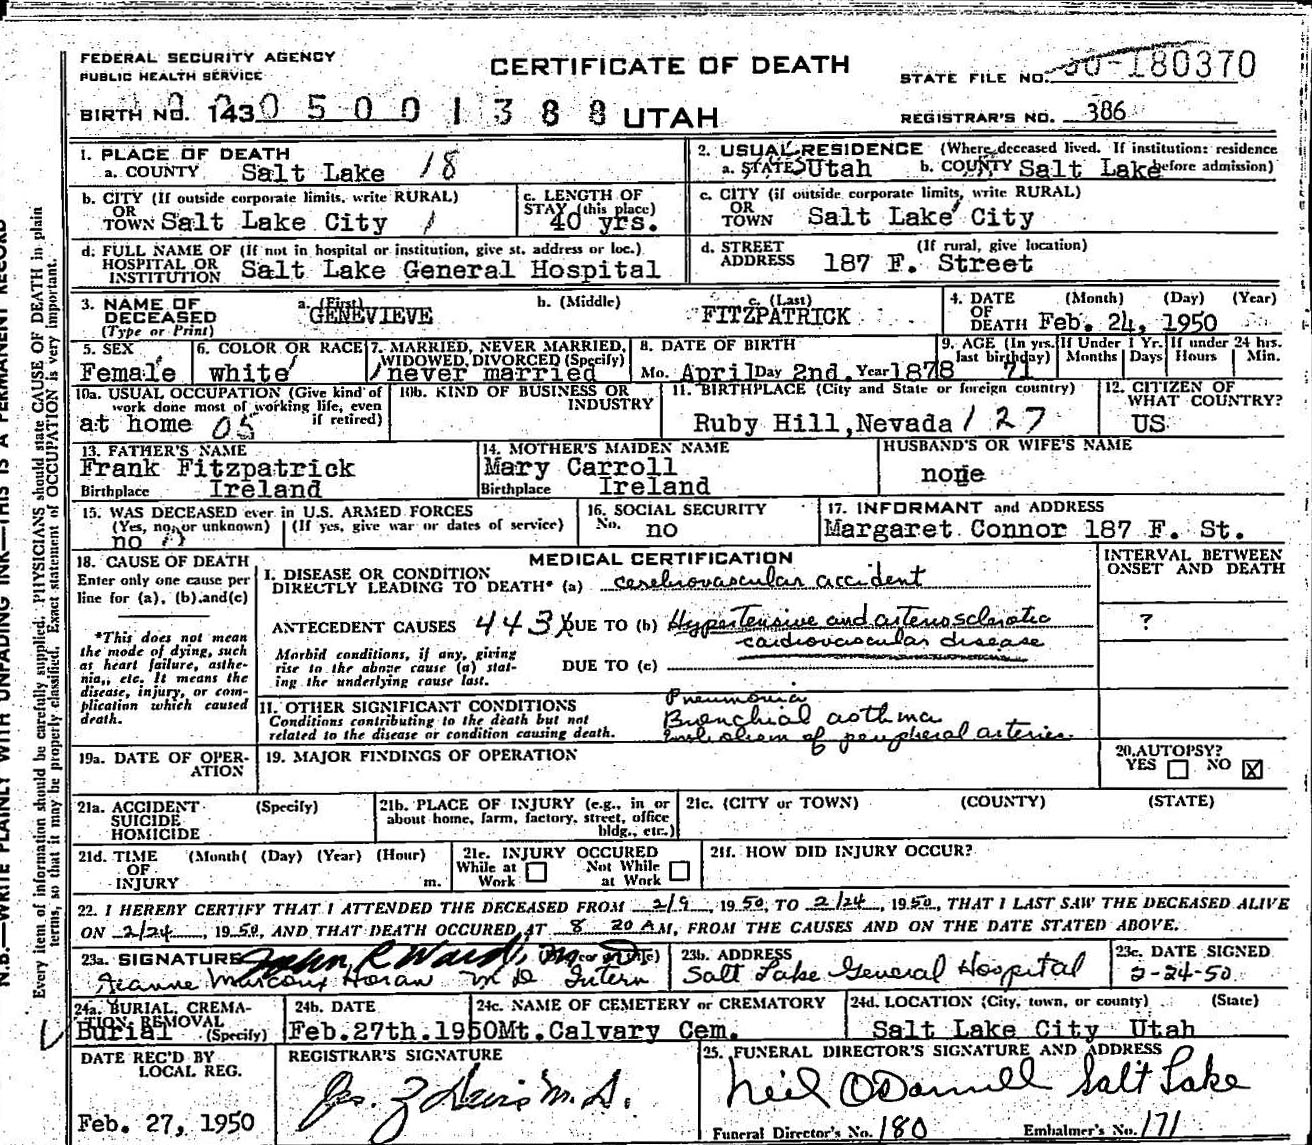 FEDERAL SECURITY AGENCY
PUBLIC HEALTH SERVICE
CERTIFICATE OF DEATH
STATE FILE NO. 50-180370
BIRTH NO. 1430 5 0 0 1 3 8 8 UTAH
REGISTRAR'S NO. 386
1. PLACE OF DEATH
a. COUNTY Salt Lake 18
2. USUAL RESIDENCE (Where deceased lived. If institution: residence
a. STATE Utah b. COUNTY Salt Lake before admission)
b. CITY (If outside corporate limits, write RURAL)
OR
TOWN Salt Lake City 1
c. LENGTH OF
STAY (this place)
40 yrs.
c. CITY (if outside corporate limits, write RURAL)
OR
TOWN Salt Lake City
d. FULL NAME OF (If not in hospital or institution, give st. address or loc.)
HOSPITAL OR
INSTITUTION Salt Lake General Hospital
d. STREET (If rural, give location)
ADDRESS 187 F. Street
3. NAME OF DECEASED
(Type or Print)
a. (First) b. (Middle) c. (Last)
GENEVIEVE FITZPATRICK
4. DATE (Month) (Day) (Year)
OF
DEATH Feb. 24, 1950
5. SEX
Female
6. COLOR OR RACE
white
7. MARRIED, NEVER MARRIED,
WIDOWED, DIVORCED (Specify)
never married
8. DATE OF BIRTH
Mo. April Day 2nd. Year 1878
9. AGE (In yrs. last birthday) 71
If Under 1 Yr. Months Days
If under 24 hrs. Hours Min.
10a. USUAL OCCUPATION (Give kind of
work done most of working life, even
if retired)
at home 05
10b. KIND OF BUSINESS OR
INDUSTRY
11. BIRTHPLACE (City and State or foreign country)
Ruby Hill, Nevada 127
12. CITIZEN OF
WHAT COUNTRY?
US
13. FATHER'S NAME
Frank Fitzpatrick
Birthplace Ireland
14. MOTHER'S MAIDEN NAME
Mary Carroll
Birthplace Ireland
HUSBAND'S OR WIFE'S NAME
none
15. WAS DECEASED ever in U.S. ARMED FORCES
(Yes, no, or unknown) (If yes, give war or dates of service)
no
16. SOCIAL SECURITY
No. no
17. INFORMANT and ADDRESS
Margaret Connor 187 F. St.
18. CAUSE OF DEATH
Enter only one cause per
line for (a), (b), and (c)
*This does not mean
the mode of dying, such
as heart failure, asthe-
nia, etc. It means the
disease, injury, or com-
plication which caused
death.
MEDICAL CERTIFICATION
INTERVAL BETWEEN
ONSET AND DEATH
I. DISEASE OR CONDITION
DIRECTLY LEADING TO DEATH* (a) cerebrovascular accident
ANTECEDENT CAUSES 443X DUE TO (b) Hypertensive and arteriosclerotic
cardiovascular disease
?
Morbid conditions, if any, giving
rise to the above cause (a) stat-
ing the underlying cause last.
DUE TO (c)
II. OTHER SIGNIFICANT CONDITIONS
Conditions contributing to the death but not
related to the disease or condition causing death.
Pneumonia
Bronchial asthma
Embolism of peripheral arteries
19a. DATE OF OPER-
ATION
19. MAJOR FINDINGS OF OPERATION
20. AUTOPSY?
YES NO X
21a. ACCIDENT (Specify)
SUICIDE
HOMICIDE
21b. PLACE OF INJURY (e.g., in or
about home, farm, factory, street, office
bldg., etc.)
21c. (CITY or TOWN) (COUNTY) (STATE)
21d. TIME (Month( (Day) (Year) (Hour)
OF
INJURY m.
21e. INJURY OCCURED
While at Work Not While at Work
21f. HOW DID INJURY OCCUR?
22. I HEREBY CERTIFY THAT I ATTENDED THE DECEASED FROM 2/9, 1950, TO 2/24, 1950, THAT I LAST SAW THE DECEASED ALIVE
ON 2/24, 1950, AND THAT DEATH OCCURED AT 8 20 AM, FROM THE CAUSES AND ON THE DATE STATED ABOVE.
23a. SIGNATURE John R Ward, (Degree or title)
Jeanne Marcoux Horan M D Intern
23b. ADDRESS
Salt Lake General Hospital
23c. DATE SIGNED
2-24-50
24a. BURIAL, CREMA-
TION, REMOVAL
Burial (Specify)
24b. DATE
Feb.27th.1950
24c. NAME OF CEMETERY or CREMATORY
Mt.Calvary Cem.
24d. LOCATION (City, town, or county) (State)
Salt Lake City Utah
DATE REC'D BY
LOCAL REG.
Feb. 27, 1950
REGISTRAR'S SIGNATURE
25. FUNERAL DIRECTOR'S SIGNATURE AND ADDRESS
Neil O'Donnell Salt Lake
Funeral Director's No. 180 Embalmer's No. 171
N.B.—WRITE PLAINLY WITH UNFADING INK—THIS IS A PERMANENT RECORD
Every item of information should be carefully supplied. PHYSICIANS should state CAUSE OF DEATH in plain
terms, so that it may be properly classified. Exact statement of OCCUPATION is very important.